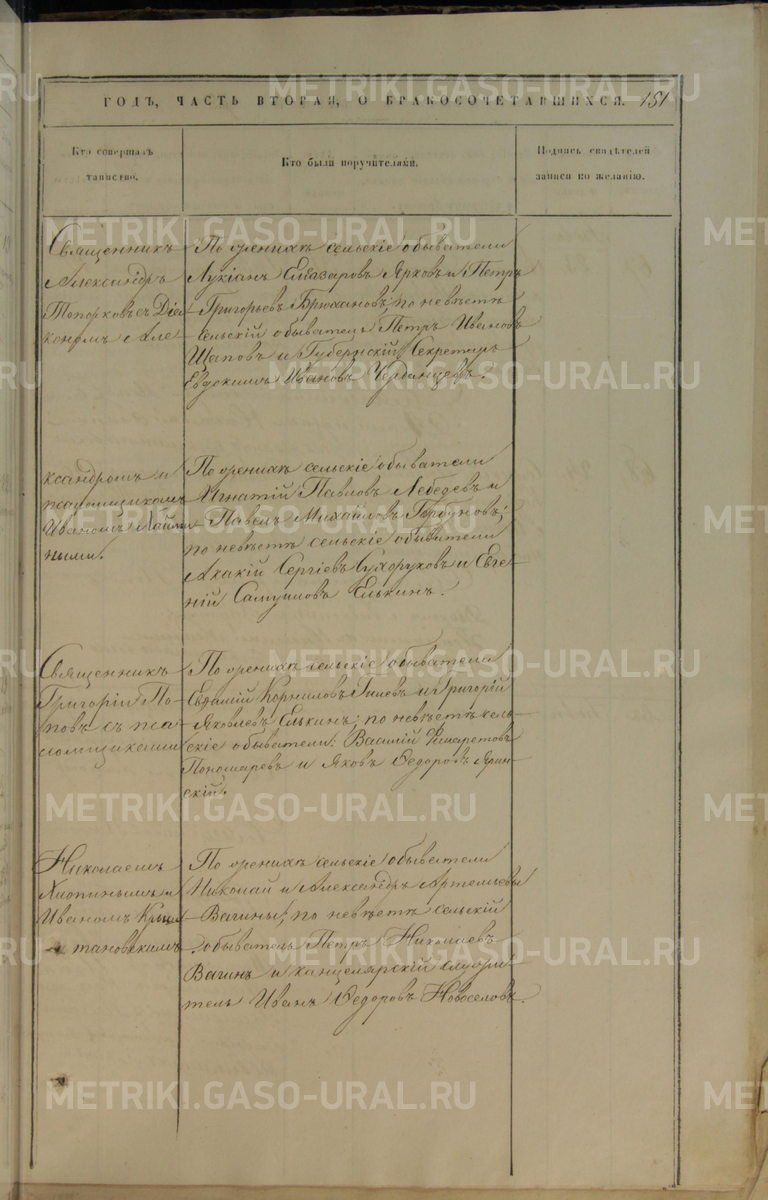 ГОДЪ, ЧАСТЬ ВТОРАЯ, О БРАКОСОЧЕТАВШИХСЯ. 151
Кто совершалъ
таинство.
Кто были поручителями.
Подпись свидѣтелей
записи по желанію.
Священникъ
Александръ
Топорковъ съ Діа
кономъ Але
По женихѣ сельскіе обыватели
Лукіанъ Елазаровъ Ярковъ и Петръ
Григорьевъ Брюхановъ, по невѣстѣ
сельскій обыватель Петръ Ивановъ
Щаповъ и Губернскій Секретарь
Евдокимъ Ивановъ
ксандромъ и
псаломщикомъ
Иваномъ
ными.
По женихѣ сельскіе обыватели
Игнатій Павловъ Лебедевъ и
Павелъ Михайловъ Горбуновъ;
по невѣстѣ сельскіе обыватели
Акакій Сергіевъ Сухоруковъ и Евге-
ній Самуиловъ Елькинъ.
Священникъ
Григорій По-
повъ съ пса-
ломщиками
По женихѣ сельскіе обыватели
Евфимій Корниловъ и Григорій
Яковлевъ Елькинъ; по невѣстѣ сель-
скіе обыватели: Василій Филаретовъ
Пономаревъ и Яковъ Ѳедоровъ Ярин-
скій.
Николаемъ
Хлопинымъ и
Иваномъ
тановскимъ
По женихѣ сельскіе обыватели
Николай и Александръ Артемьевы
Вагины; по невѣстѣ сельскій
обыватель Петръ Николаевъ
Вагинъ и канцелярскій служи-
тель Иванъ Ѳедоровъ Новоселовъ.
METRIKI.GASO-URAL.RU